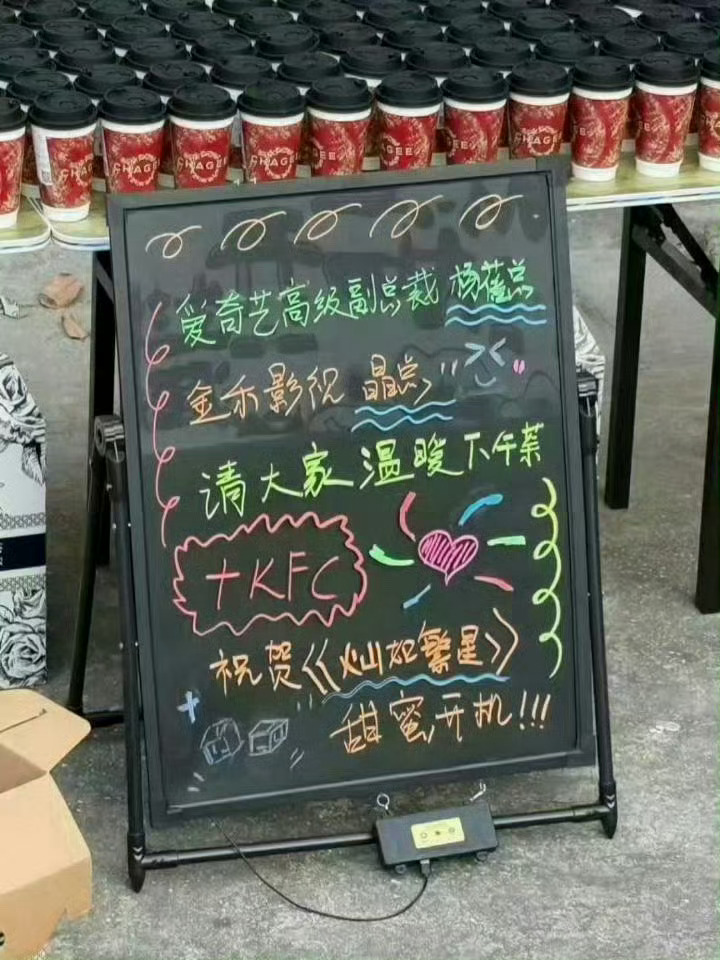 CHAGEE
爱奇艺高级副总裁 杨蓓总
金禾影视 晶总
请大家温暖下午茶
+KFC
祝贺《灿如繁星》
甜蜜开机!!!